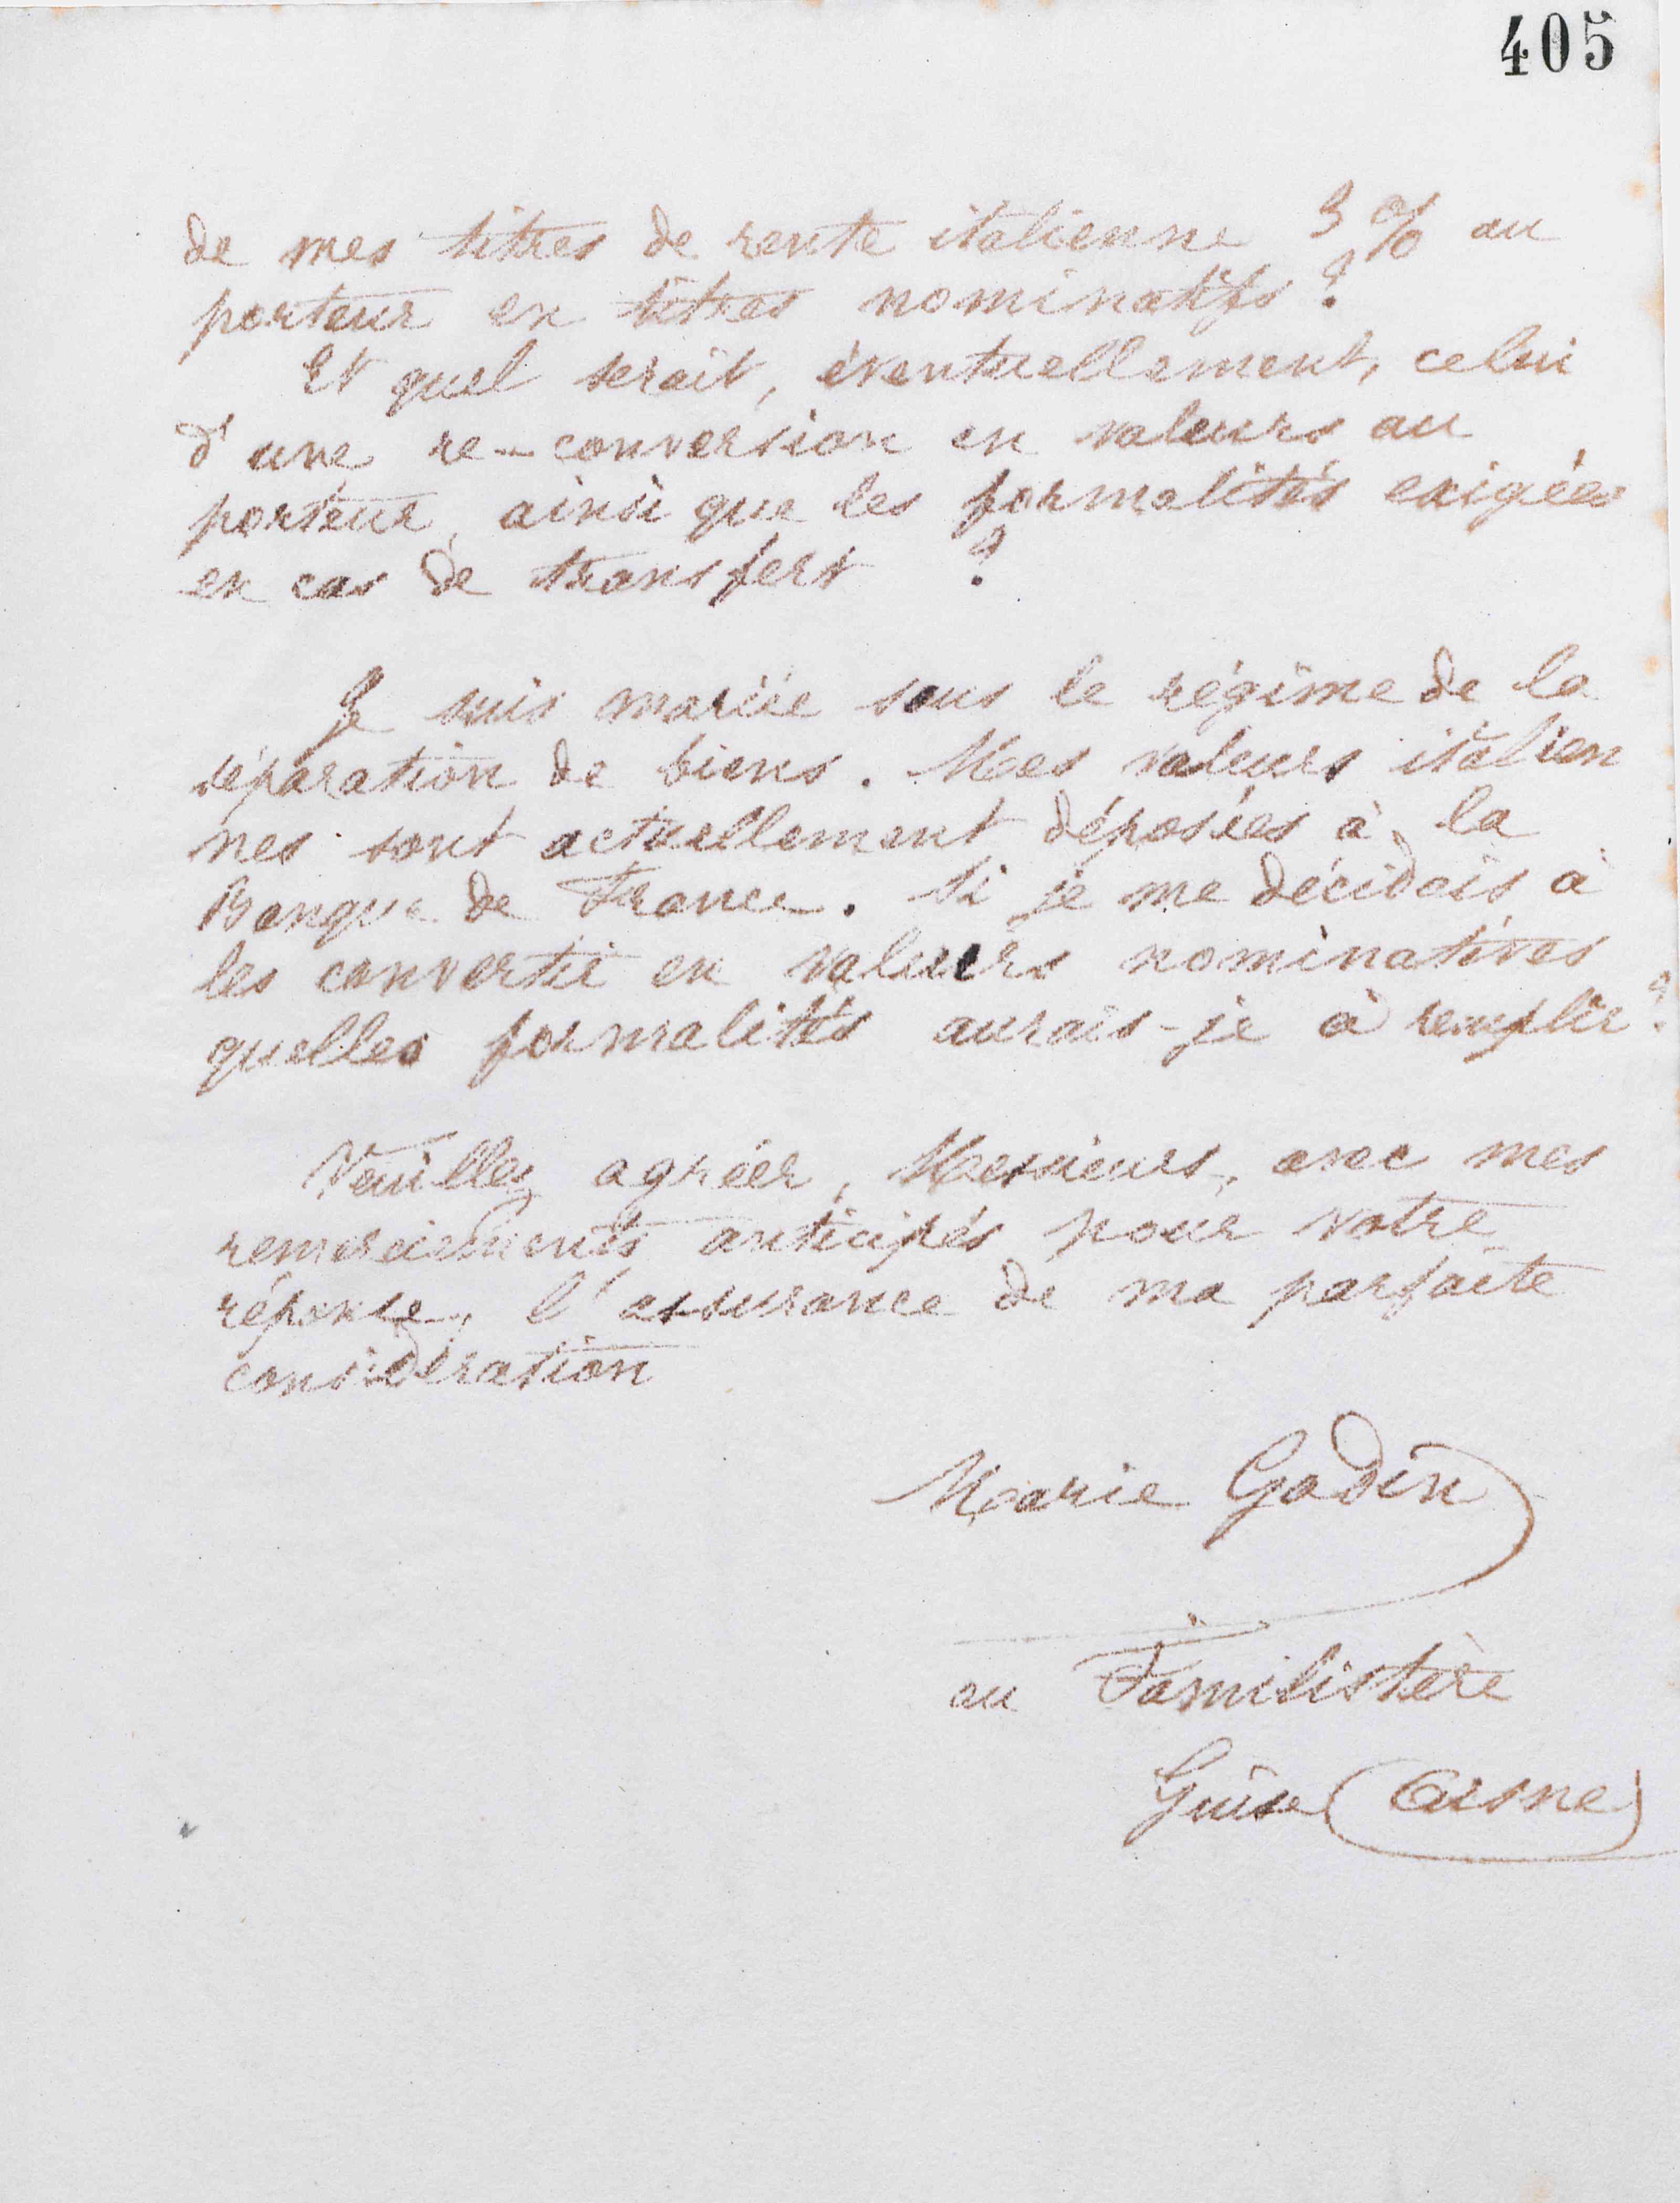 405
de mes titres de rente italienne 3 % au
porteur en titres nominatifs ?
Et quel serait, éventuellement, celui
d'une re-conversion en valeurs au
porteur, ainsi que les formalités exigées
en cas de transfert ?
Je suis mariée sous le régime de la
séparation de biens. Mes valeurs italien
nes sont actuellement déposées à la
Banque de France. Si je me décidais à
les convertir en valeurs nominatives
quelles formalités aurais-je à remplir ?
Veuillez agréer, Messieurs, avec mes
remerciements anticipés pour votre
réponse, l'assurance de ma parfaite
considération
Marie Godin
au Familistère
Guise (Aisne)